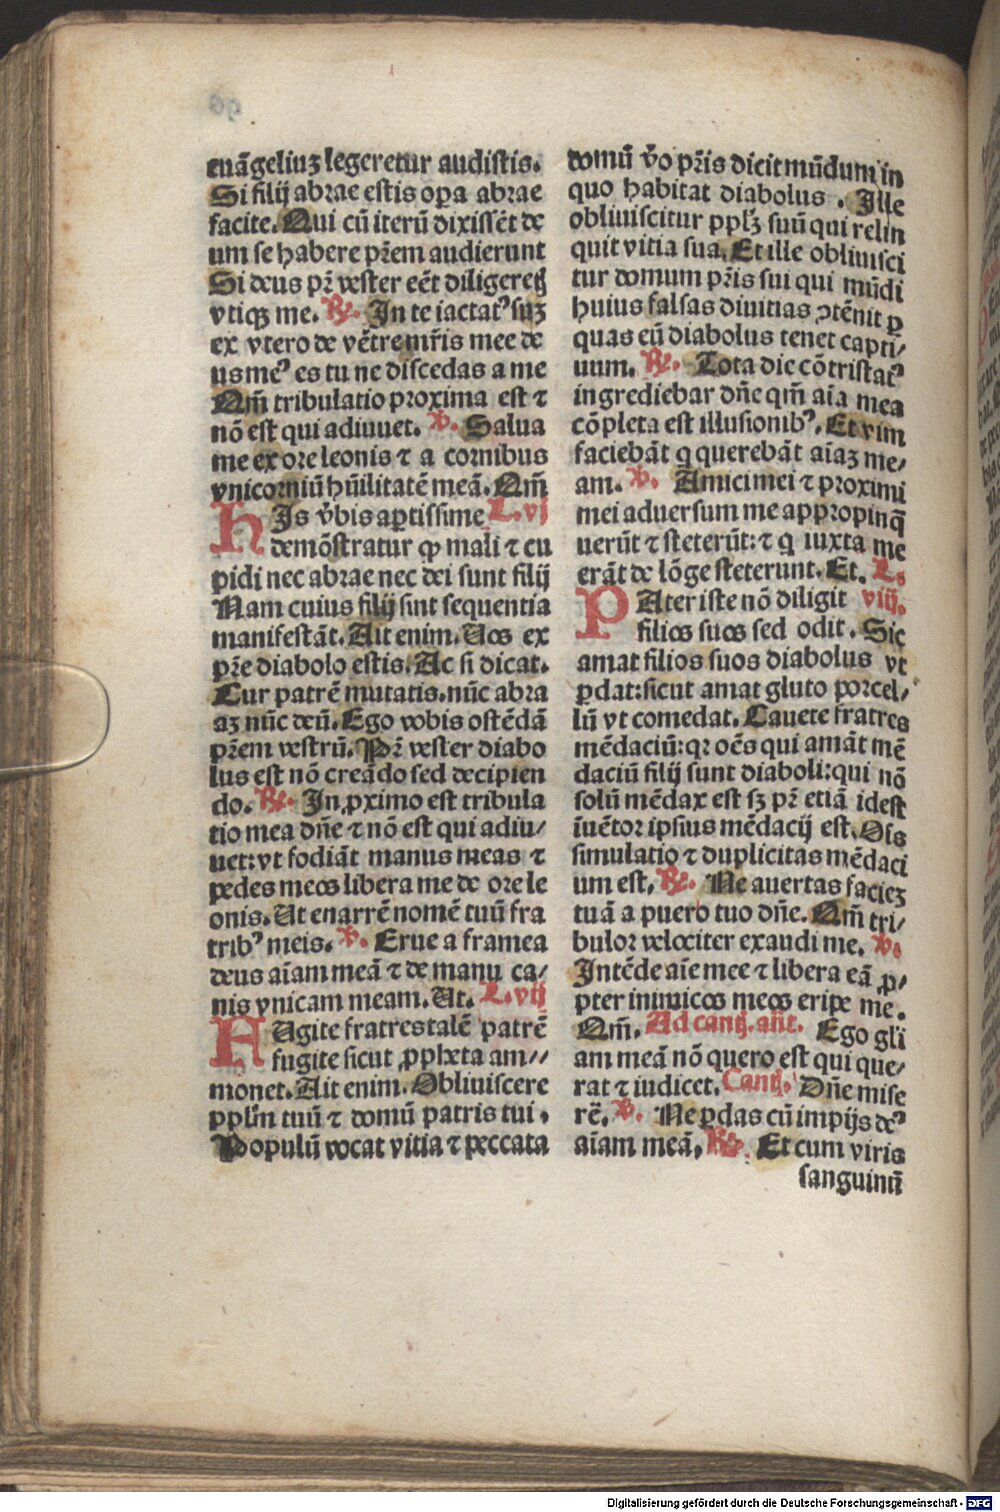 euãgeliuʒ legeretur audistis.
Si filij abrae estis oꝑa abrae
facite. Qui cũ iterũ dixissẽt de
um se habere pr̃em audierunt
Si deus pr̃ vester eẽt diligeretꝭ
vtiqʒ me. ℟. In te iactatꝰ suʒ
ex vtero de vẽtre mr̃is mee de
us meꝰ es tu ne discedas a me
Qm̃ tribulatio proxima est ⁊
nõ est qui adiuuet. ℣. Salua
me ex ore leonis ⁊ a cornibus
vnicorniũ hũilitatẽ meã. Qm̃
HIs v̾bis aꝑtissime L. vj
demõstratur ꝙ mali ⁊ cu
pidi nec abrae nec dei sunt filij
Nam cuius filij sint sequentia
manifestãt. Ait enim. Uos ex
pr̃e diabolo estis. Ac si dicat.
Cur patrẽ mutatis. nũc abra
aʒ nũc deũ. Ego vobis ostẽdã
pr̃em vestrũ. Pr̃ vester diabo
lus est nõ creãdo sed decipien
do. ℟. In ꝓximo est tribula
tio mea dñe ⁊ nõ est qui adiu/
uet: vt fodiãt manus meas ⁊
pedes meos libera me de ore le
onis. Ut enarrẽ nomẽ tuũ fra
tribꝰ meis. ℣. Erue a framea
deus aĩam meã ⁊ de manu ca/
nis vnicam meam. Ut. L. vij
FUgite fratres talẽ patrẽ
fugite sicut ꝓpheta am//
monet. Ait enim. Obliuiscere
pplm̃ tuũ ⁊ domũ patris tui.
Populũ vocat vitia ⁊ peccata
domũ v̾o pr̃is dicit mũdum in
quo habitat diabolus. Ille
obliuiscitur pplʒ suũ qui relin
quit vitia sua. Et ille obliuisci
tur domum pr̃is sui qui mũdi
huius falsas diuitias ꝯtẽnit ꝑ
quas eũ diabolus tenet capti/
uum. ℟. Tota die cõtristatꝰ
ingrediebar dñe qm̃ aĩa mea
cõpleta est illusionibꝰ. Et vim
faciebãt q querebãt aĩaʒ me/
am. ℣. Amici mei ⁊ proximi
mei aduersum me appropinq̃
uerũt ⁊ steterũt: ⁊ q iuxta me
erãt de lõge steterunt. Et. L.
PAter iste nõ diligit viij.
filios suos sed odit. Sic
amat filios suos diabolus vt
ꝑdat: sicut amat gluto porcel/
lũ vt comedat. Cauete fratres
mẽdaciũ: qꝛ oẽs qui amãt mẽ
daciũ filij sunt diaboli: qui nõ
solũ mẽdax est sʒ pr̃ etiã idest
ĩuẽtor ipsius mẽdacij est. Oĩs
simulatio ⁊ duplicitas mẽdaci
um est. ℟. Ne auertas facieʒ
tuã a puero tuo dñe. Qm̃ tri/
bulor velociter exaudi me. ℣.
Intẽde aĩe mee ⁊ libera eã ꝓ/
pter inimicos meos eripe me.
Qm̃. Ad cantꝭ. añt. Ego glĩ
am meã nõ quero est qui que/
rat ⁊ iudicet. Cantꝭ. Dñe mise
rẽ. ℣. Ne ꝑdas cũ impijs deꝰ
aĩam meã. ℟. Et cum viris
sanguinũ
Digitalisierung gefördert durch die Deutsche Forschungsgemeinschaft - DFG